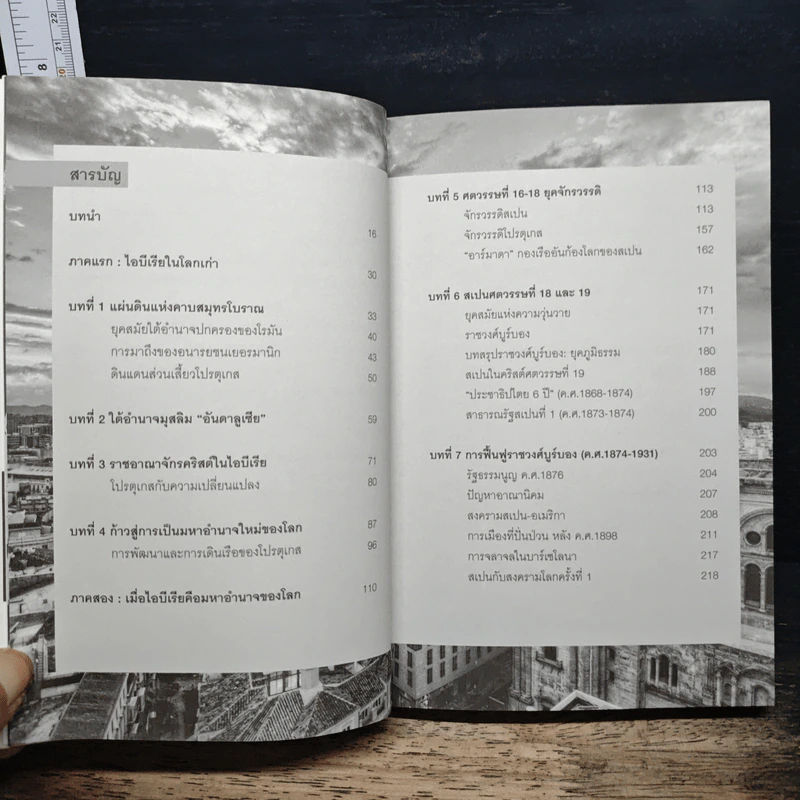 8
22
21
20
สารบัญ
บทนำ 16
ภาคแรก : ไอบีเรียในโลกเก่า 30
บทที่ 1 แผ่นดินแห่งคาบสมุทรโบราณ 33
ยุคสมัยใต้อำนาจปกครองของโรมัน 40
การมาถึงของอนารยชนเยอรมานิก 43
ดินแดนส่วนเสี้ยวโปรตุเกส 50
บทที่ 2 ใต้อำนาจมุสลิม "อันดาลูเซีย" 59
บทที่ 3 ราชอาณาจักรคริสต์ในไอบีเรีย 71
โปรตุเกสกับความเปลี่ยนแปลง 80
บทที่ 4 ก้าวสู่การเป็นมหาอำนาจใหม่ของโลก 87
การพัฒนาและการเดินเรือของโปรตุเกส 96
ภาคสอง : เมื่อไอบีเรียคือมหาอำนาจของโลก 110
บทที่ 5 ศตวรรษที่ 16-18 ยุคจักรวรรดิ 113
จักรวรรดิสเปน 113
จักรวรรดิโปรตุเกส 157
"อาร์มาดา" กองเรืออันก้องโลกของสเปน 162
บทที่ 6 สเปนศตวรรษที่ 18 และ 19 171
ยุคสมัยแห่งความวุ่นวาย 171
ราชวงศ์บูร์บอง 171
บทสรุปราชวงศ์บูร์บอง: ยุคภูมิธรรม 180
สเปนในคริสต์ศตวรรษที่ 19 188
"ประชาธิปไตย 6 ปี" (ค.ศ.1868-1874) 197
สาธารณรัฐสเปนที่ 1 (ค.ศ.1873-1874) 200
บทที่ 7 การฟื้นฟูราชวงศ์บูร์บอง (ค.ศ.1874-1931) 203
รัฐธรรมนูญ ค.ศ.1876 204
ปัญหาอาณานิคม 207
สงครามสเปน-อเมริกา 208
การเมืองที่ปั่นป่วน หลัง ค.ศ.1898 211
การจลาจลในบาร์เซโลนา 217
สเปนกับสงครามโลกครั้งที่ 1 218